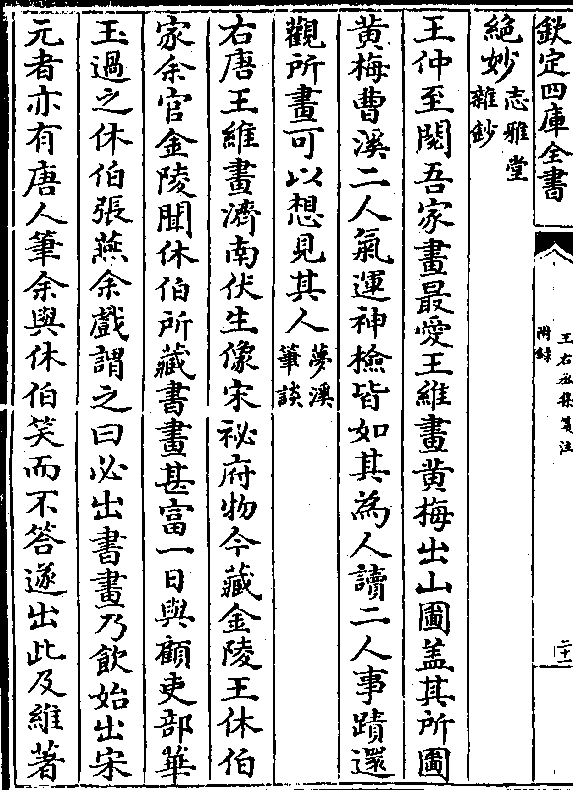 欽定四庫全書
王右丞集箋注
附錄
二十一
絶妙志雅堂雜鈔
王仲至閱吾家畫最愛王維畫黄梅出山圖葢其所圖
黄梅曹溪二人氣運神檢皆如其為人讀二人事蹟還
觀所畫可以想見其人夢溪筆談
右唐王維畫濟南伏生像宋祕府物今藏金陵王休伯
家余官金陵聞休伯所藏書畫甚富一日與顧吏部華
玉過之休伯張燕余戲謂之曰必出書畫乃飲始出宋
元者亦有唐人筆余與休伯笑而不答遂出此及維著